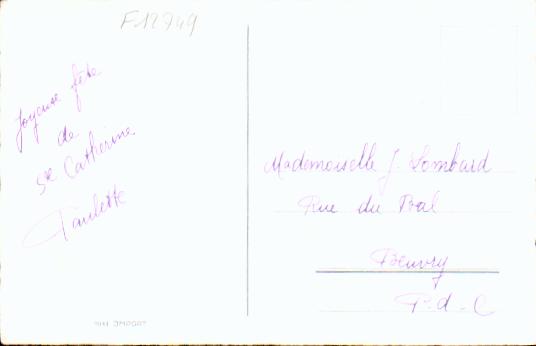 F12749
Joyeuse fête
de
Ste Catherine
Paulette
Mademoiselle J. Lombard
Rue du Bal
Beuvry
P. d. C